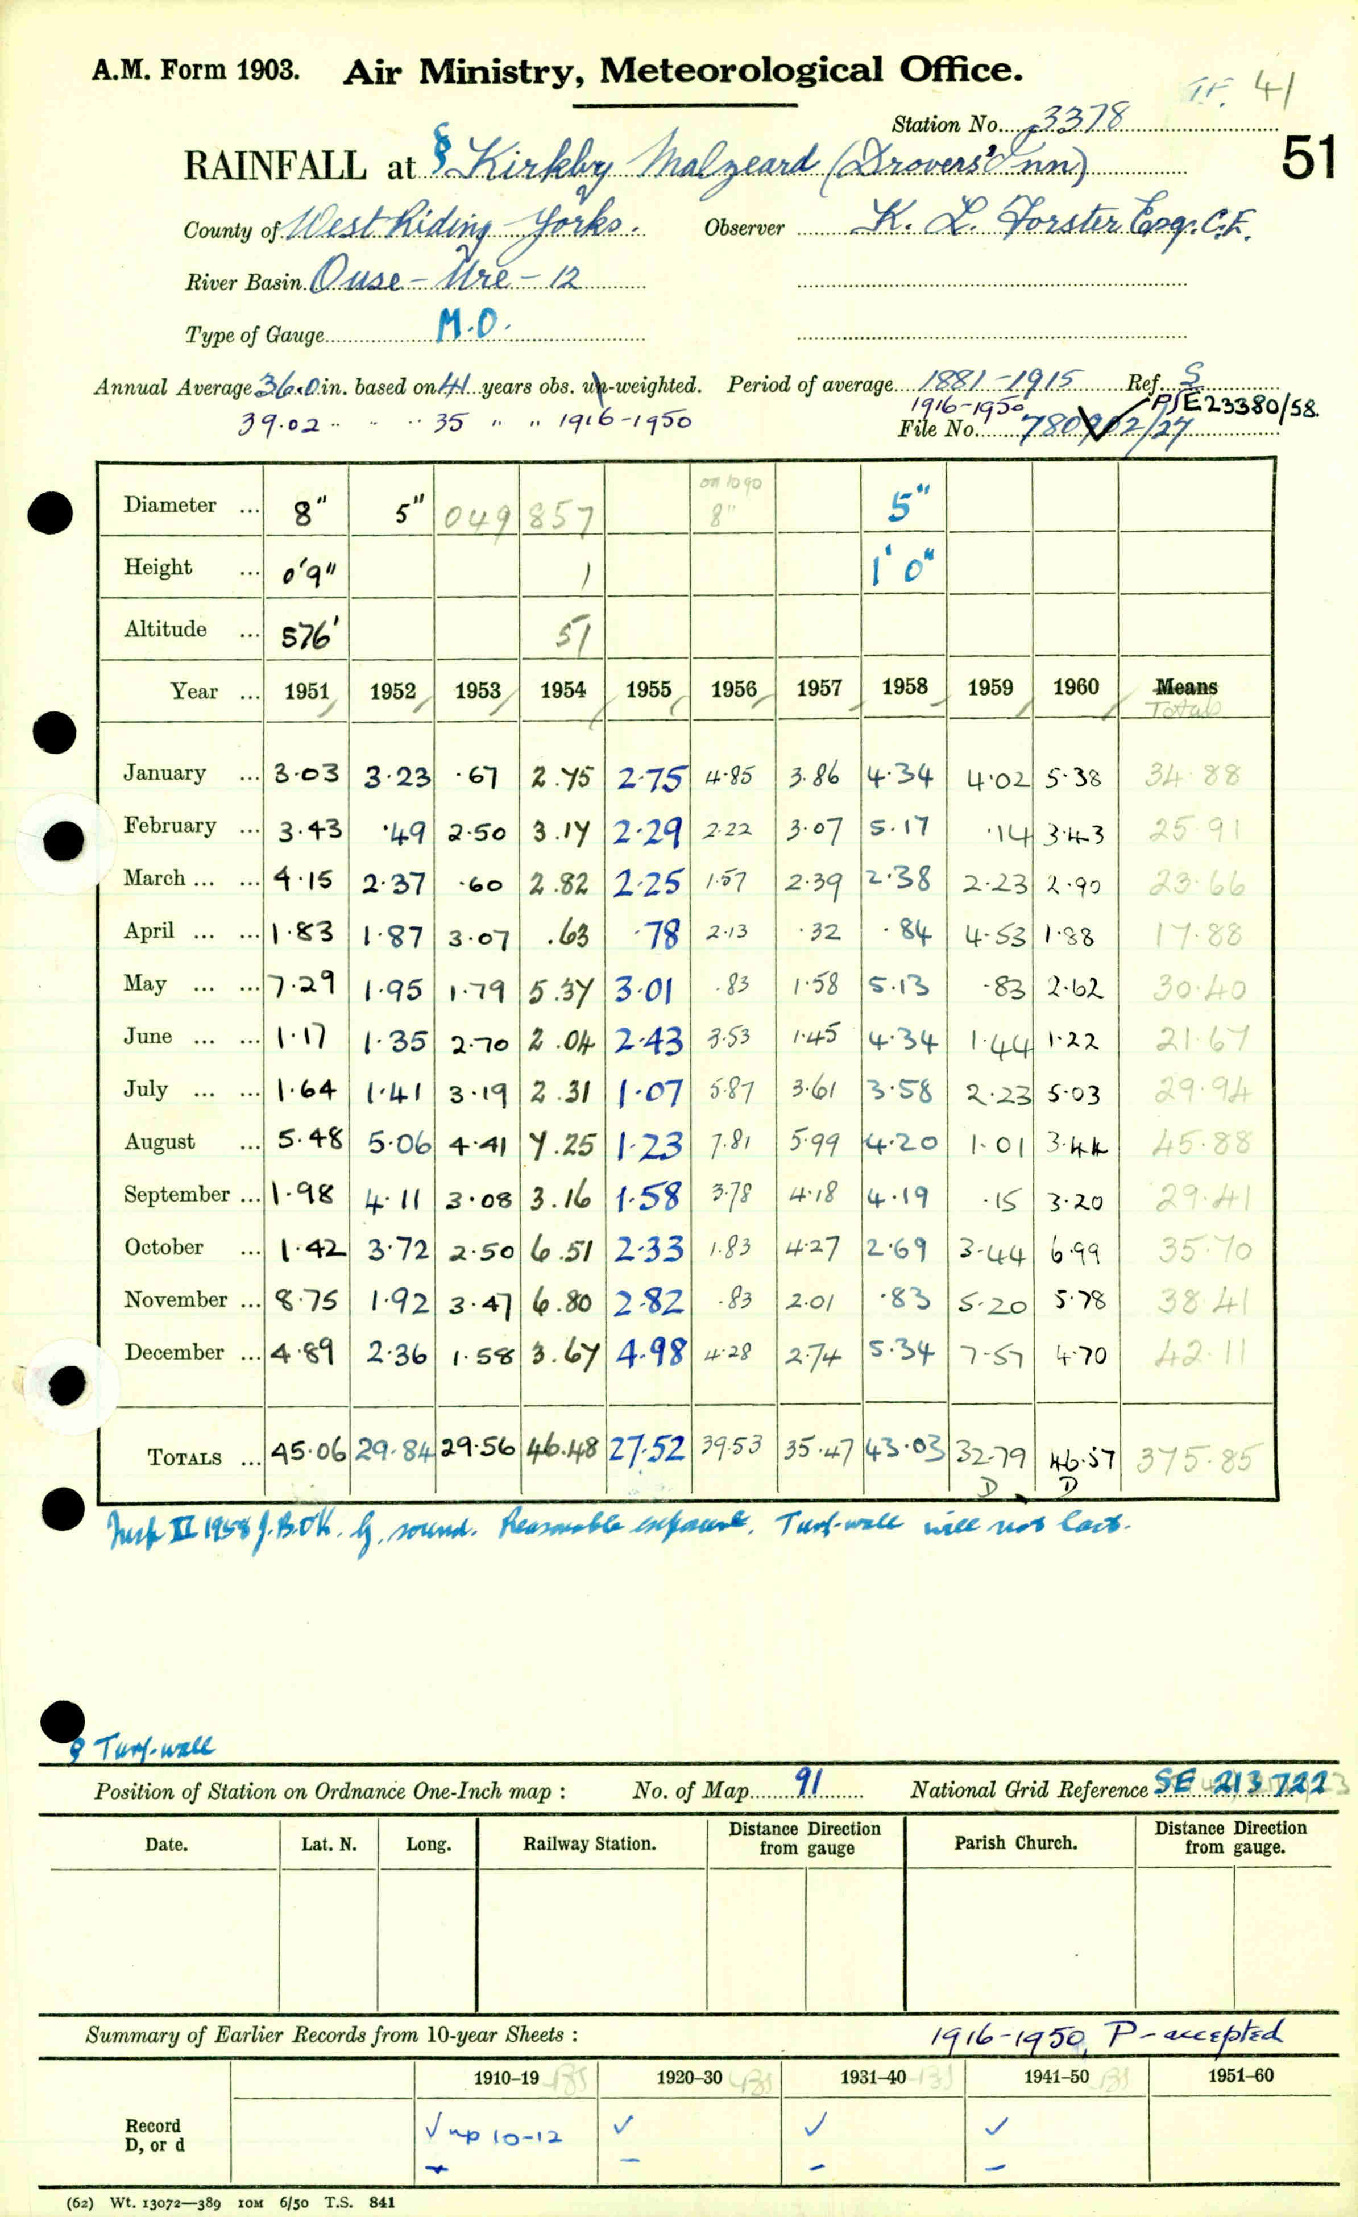 A.M. Form 1903. Air Ministry, Meteorological Office.
41
Station No. 3378
51
RAINFALL at § Kirkby Malzeard (Drovers' Inn)
County of West Riding - Yorks. Observer K. L. Forster Esq. C.E.
River Basin Ouse - Ure - 12
Type of Gauge M.O.
Annual Average 36.0 in. based on 41 years obs. un-weighted. Period of average 1881-1915 Ref. S
39.02 " " " 35 " " 1916-1950 1916-1950 PSE23380/58.
File No. 780902/27
Diameter ... 8" 5" 049 857 8" 5"
Height ... 0'9" 1 1' 0"
Altitude ... 576' 51
Year ... 1951 1952 1953 1954 1955 1956 1957 1958 1959 1960 Means
Totals
January ... 3.03 3.23 .67 2.75 2.75 4.85 3.86 4.34 4.02 5.38 34.88
February ... 3.43 .49 2.50 3.17 2.29 2.22 3.07 5.17 .14 3.43 25.91
March ... ... 4.15 2.37 .60 2.82 2.25 1.57 2.39 2.38 2.23 2.90 23.66
April ... ... 1.83 1.87 3.07 .63 .78 2.13 .32 .84 4.53 1.88 17.88
May ... ... 7.29 1.95 1.79 5.37 3.01 .83 1.58 5.13 .83 2.62 30.40
June ... ... 1.17 1.35 2.70 2.04 2.43 3.53 1.45 4.34 1.44 1.22 21.67
July ... ... 1.64 1.41 3.19 2.31 1.07 5.87 3.61 3.58 2.23 5.03 29.94
August ... 5.48 5.06 4.41 7.25 1.23 7.81 5.99 4.20 1.01 3.44 45.88
September ... 1.98 4.11 3.08 3.16 1.58 3.78 4.18 4.19 .15 3.20 29.41
October ... 1.42 3.72 2.50 6.51 2.33 1.83 4.27 2.69 3.44 6.99 35.70
November ... 8.75 1.92 3.47 6.80 2.82 .83 2.01 .83 5.20 5.78 38.41
December ... 4.89 2.36 1.58 3.67 4.98 4.28 2.74 5.34 7.57 4.70 42.11
TOTALS ... 45.06 29.84 29.56 46.48 27.52 39.53 35.47 43.03 32.79 46.57 375.85
D D
Insp II 1958 J.B.O'K. G. sound. Reasonable exposure. Turf-wall will not last.
§ Turf-wall
Position of Station on Ordnance One-Inch map : No. of Map 91 National Grid Reference SE 213 722
Date. Lat. N. Long. Railway Station. Distance Direction from gauge Parish Church. Distance Direction from gauge.
Summary of Earlier Records from 10-year Sheets : 1916-1950, P - accepted
1910–19 1920–30 1931–40 1941–50 1951–60
Record ✓ up 10-12 ✓ ✓ ✓
D, or d - - - -
(62) Wt. 13072—389 10M 6/50 T.S. 841